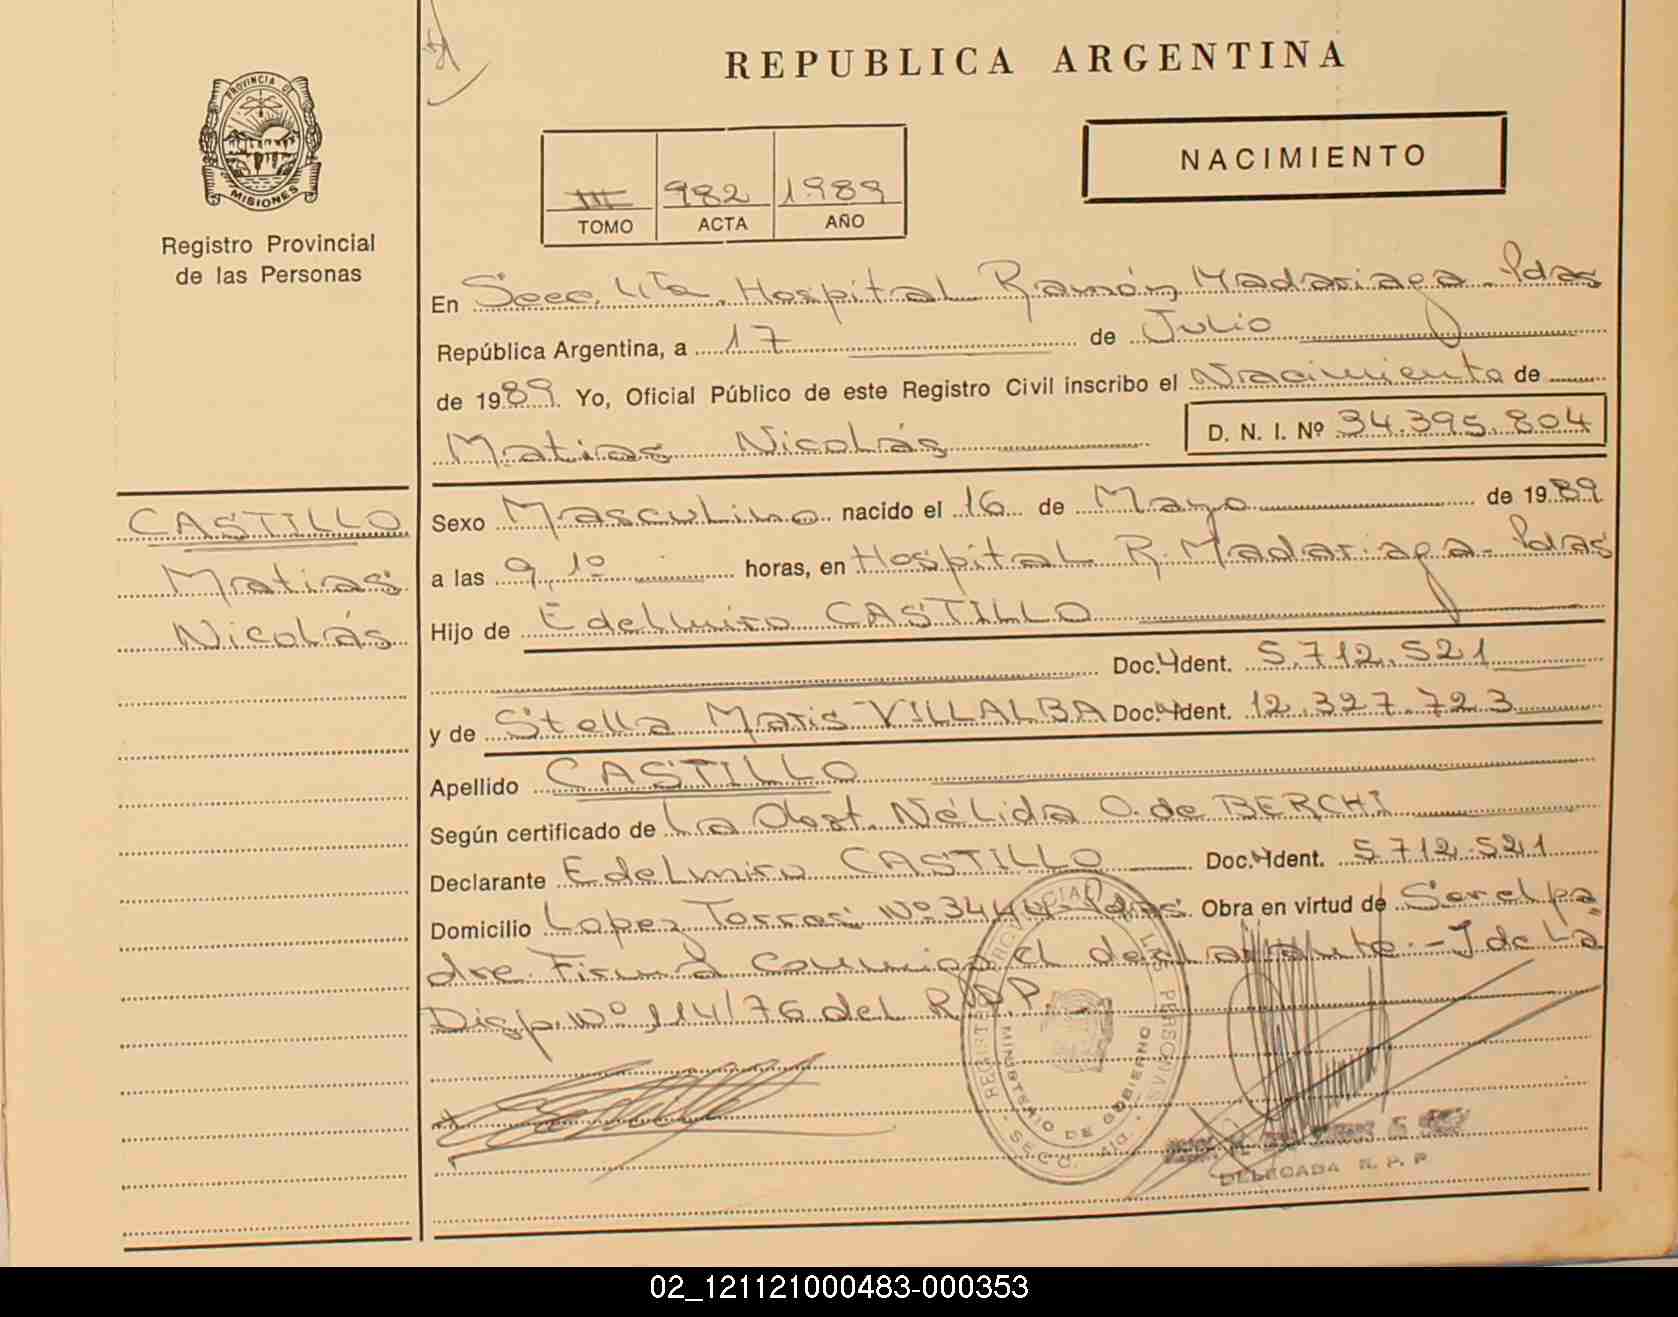 REPUBLICA ARGENTINA
PROVINCIA DE
MISIONES
Registro Provincial
de las Personas
NACIMIENTO
III 982 1989
TOMO ACTA AÑO
En Secc. 4ta. Hospital Ramón Madariaga - Pdas
República Argentina, a 17 de Julio
de 1989. Yo, Oficial Público de este Registro Civil inscribo el Nacimiento de
Matias Nicolás D. N. I. Nº 34.395.804
CASTILLO
Matias
Nicolás
Sexo Masculino nacido el 16 de Mayo de 1989
a las 9,10 horas, en Hospital R. Madariaga - Pdas
Hijo de Edelmiro CASTILLO
Doc. Ident. 5.712.521
y de Stella Maris VILLALBA Doc. Ident. 12.327.723
Apellido CASTILLO
Según certificado de La Obst. Nélida O. de BERCHI
Declarante Edelmiro CASTILLO Doc. Ident. 5.712.521
Domicilio Lopez Torres Nº 3444 - Pdas. Obra en virtud de Ser el pa
dre. Firma conmigo el declarante.- J de La
Disp. Nº 114/76 del R.P.P.-
MINISTERIO DE GOBIERNO
SECC. 4ta
DELEGADA R. P. P
02_121121000483-000353